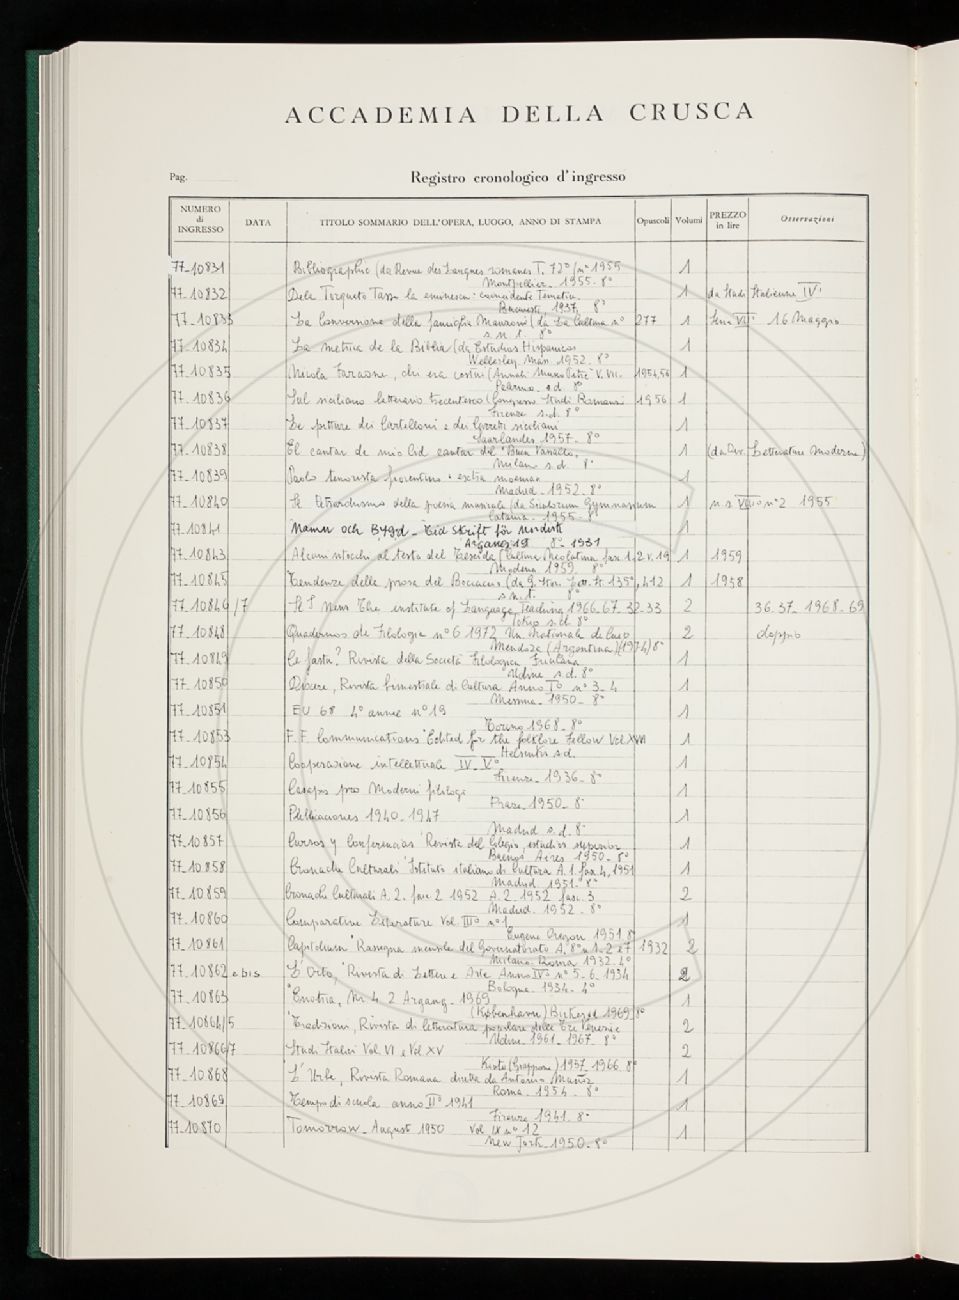 ACCADEMIA DELLA CRUSCA
Pag.
Registro cronologico d'ingresso
NUMERO di INGRESSO DATA TITOLO SOMMARIO DELL'OPERA, LUOGO, ANNO DI STAMPA Opuscoli Volumi PREZZO in lire Osservazioni
77-10831 Bibliographie (da Revue des Langues romanes T. 72° 1955 1
Montpellier 1955. 8°
77-10832 Dela Torquato Tasso la eminescu: 1 da Studi Italieni IV
Bucuresti, 1937, 8°
77-10833 La Conversione della famiglia Manzoni (da La Cultura n° 277 1 VI 16 Maggio
s. n. t. 8°
77-10834 La metrica de la Biblia (da Estudios Hispanicos 1
Wellesley Mass. 1952. 8°
77-10835 Nicola Faraone, chi era costui (Annali V. VII. 1954,56 1
Palermo s.d. 8°
77-10836 Sul siciliano letterario trecentesco (Congresso Studi Romanzi 1956 1
Firenze s.d. 8°
77-10837 Le pitture dei Cartelloni e dei Carretti siciliani 1
Saarlandes 1957. 8°
77-10838 El cantar de mio Cid cantar del "Buen Vasallo, 1 Letterature Moderne)
Milano s.d. 8°
77-10839 Paolo tenorista fiorentino 1
Madrid. 1952. 8°
77-10840 Il Petrarchismo della poesia musicale (da Siculorum Gymnasium 1 n.s. VIII n°2 1955
Catania. 1955. 8°
77-10841 Namn och Bygd - Tidskrift för nordisk 1
Argang 19 8° 1931
77-10843 Alcuni ritocchi al testo del Teseida (Cultura Neolatina fasc. 1.2 v. 19 1 1959
Modena 1959. 8°
77-10845 Tendenze della prosa del Boccaccio (da G. Stor. Lett. It. 135°, 412 1 1958
s. n. t. 8°
77-10846 /7 The institute of Language Teaching 1966-67. 32-33 2 36.37. 1968-69
Tokio s.d. 8°
77-10848 Quadernos de Filologia n° 6 1972 Un. Nationale de Cuyo 2 doppio
Mendoza (Argentina) (1974) 8°
77-10849 Ce fastu? Rivista della Società Filologica Friulana 1
Udine s.d. 8°
77-10850 Rivista bimestrale di Cultura Anno I° n° 3-4 1
Messina. 1950. 8°
77-10851 EU 68 4° année n° 19 1
Torino 1968. 8°
77-10853 F F Communications "Edited for the folklore Fellow Vol XVII 1
Helsinki s.d.
77-10854 Cooperazione intellettuale IV-V° 1
Firenze. 1936. 8°
77-10855 Casopis pro Moderni filologi 1
Praze. 1950. 8°
77-10856 Publicaciones 1940-1947 1
Madrid s.d. 8°
77-10857 Cursos y Conferencias "Revista del Colegio, estudios superior 1
Buenos Aires 1950. 8°
77-10858 Cronache Culturali "Istituto italiano di Cultura A.1. fasc. 4, 1951 1
Madrid. 1951. 8°
77-10859 Cronache Culturali A.2. fasc 2 1952 A.2. 1952 fasc. 3 2
Madrid. 1952. 8°
77-10860 Comparative Literature Vol. III° n° 1 1
Eugene Oregon 1951. 8°
77-10861 Capitolium "Rassegna mensile del Governatorato A. 8° n. 1-2 e 7 1932 2
Milano-Roma 1932. 4°
77-10862 e bis L'Orto, "Rivista di Lettere e Arte Anno IV° n° 5-6. 1934 2
Bologna. 1934. 4°
77-10863 "Enotria, Nr. 4. 2 Argang. 1969, 1
(København) Birkerod 1969. 8°
77-10864/5 "Tradizioni, Rivista di letteratura popolare delle Tre Venezie 2
Udine 1961-1967. 8°
77-10866/7 Studi Italici Vol. VI e Vol XV 2
Kyoto (Giappone) 1957. 1966. 8°
77-10868 L'Urbe, Rivista Romana diretta da Antonio Muñoz 1
Roma. 1954. 8°
77-10869 Tempo di scuola anno II° 1941 1
Firenze 1941. 8°
77-10870 Tomorrow - August 1950 Vol. IX n° 12 1
New York. 1950. 8°